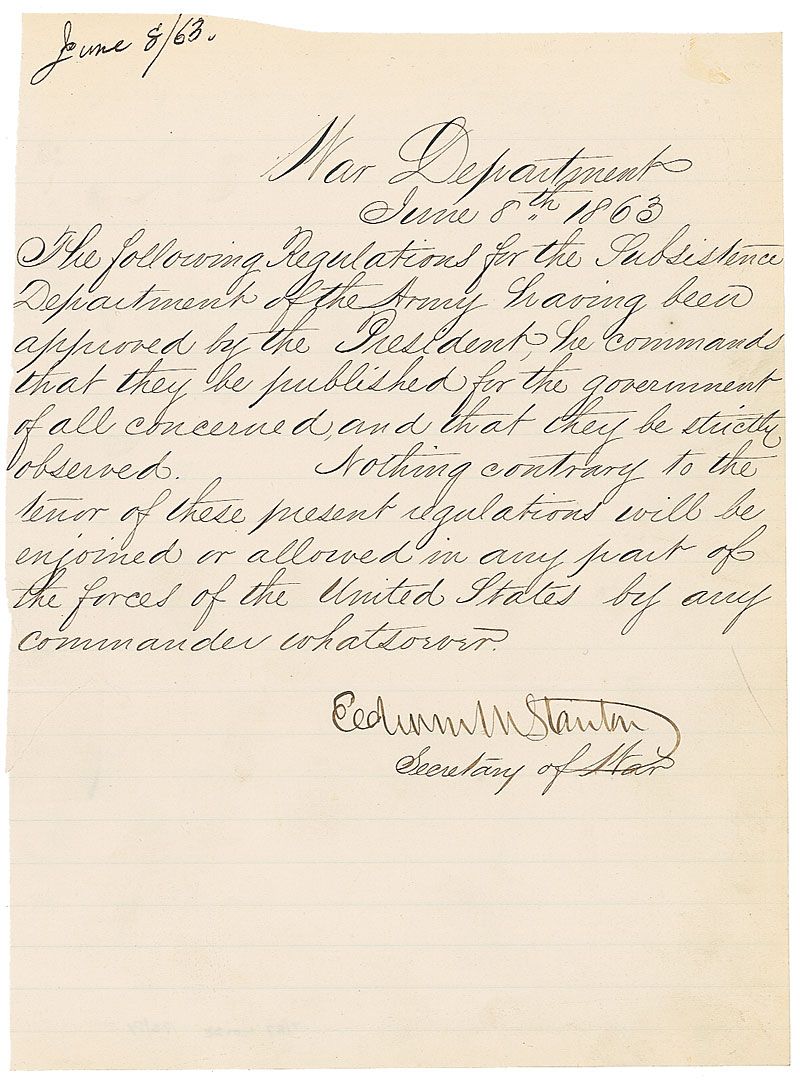 June 8/63.
War Department
June 8th. 1863
The following Regulations for the Subsistence
Department of the Army having been
approved by the President, he commands
that they be published for the government
of all concerned, and that they be strictly
observed. Nothing contrary to the
tenor of these present regulations will be
enjoined or allowed in any part of
the forces of the United States by any
commander whatsoever.
Edwin M Stanton
Secretary of War